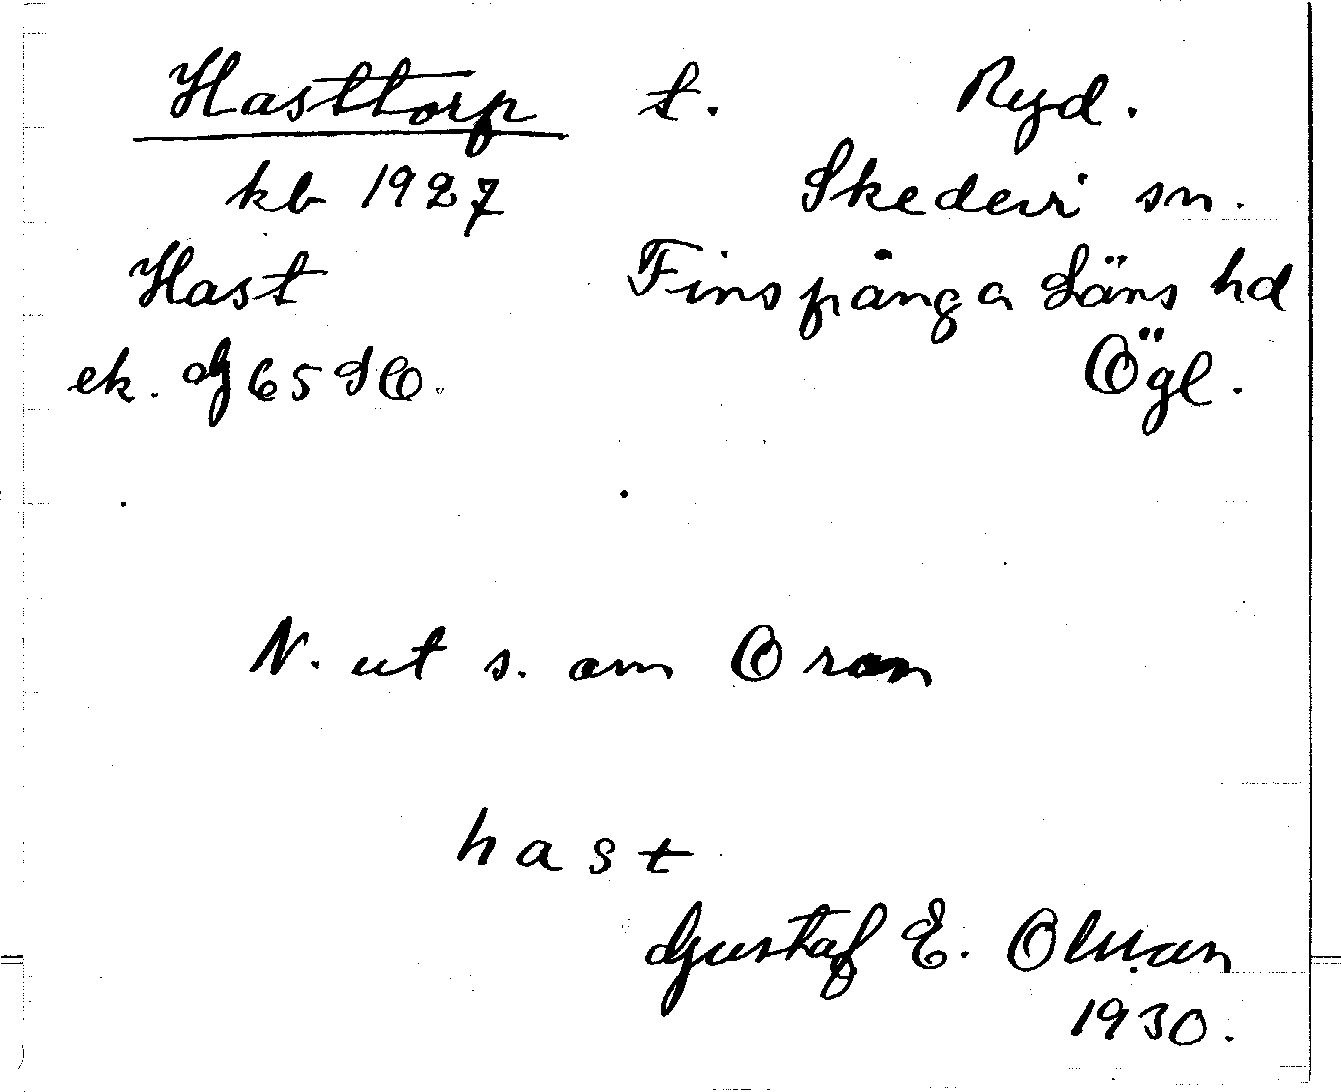 Hasttorp t. Ryd.
kb 1927 Skedevi sn.
Hast Finspånga Läns hd
ek. G 65 SO. Ögl.
N. ut s. om Oran
hast
Gustaf E. Olsson
1930.